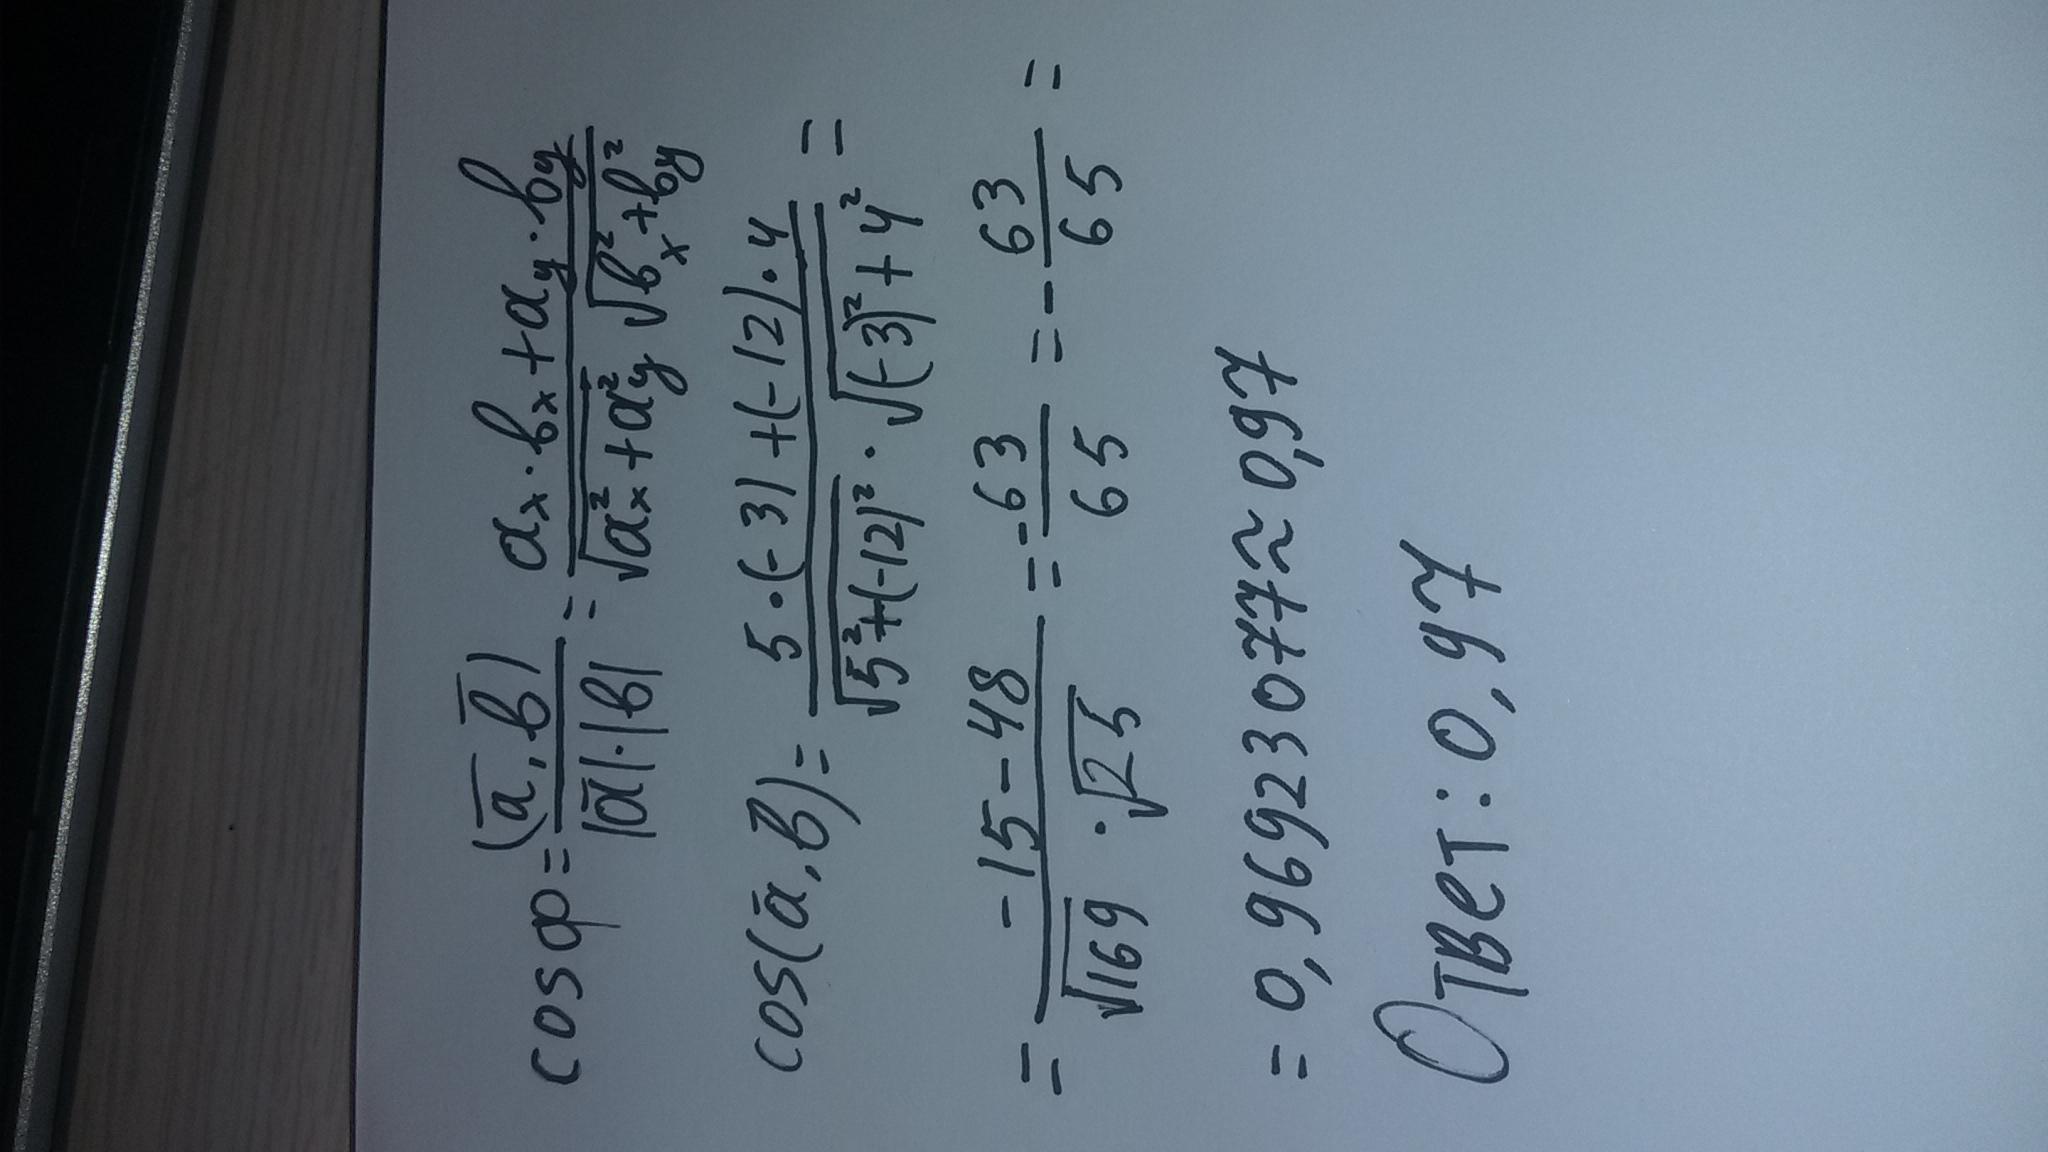 cos φ = (a̅, b̅) / |a̅|·|b̅| = aₓ·bₓ + a_y·b_y / √(aₓ² + a_y²) √(bₓ² + b_y²)
cos(a̅, b̅) = 5·(-3) + (-12)·4 / √(5² + (-12)²) · √((-3)² + 4²) =
= -15 - 48 / √169 · √25 = -63 / 65 = - 63 / 65 =
= 0,96923077 ≈ 0,97
Ответ: 0,97